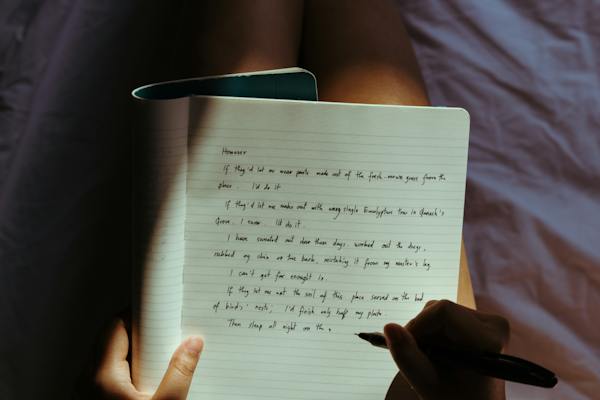 However
If they'd let me wear pants made out of the fresh - grass from the
place. I'd do it
If they'd let me make out with every single Eucalyptus tree in
Grove. I swear I'd do it.
I have sweated out dew these days, worked out the dregs,
rubbed my chin on the bark, mistaking it from my master's leg
I can't get far enough in.
If they let me eat the soil of this place served on the bed
of birds' nests, I'd finish only half my plate.
Then sleep all night on the